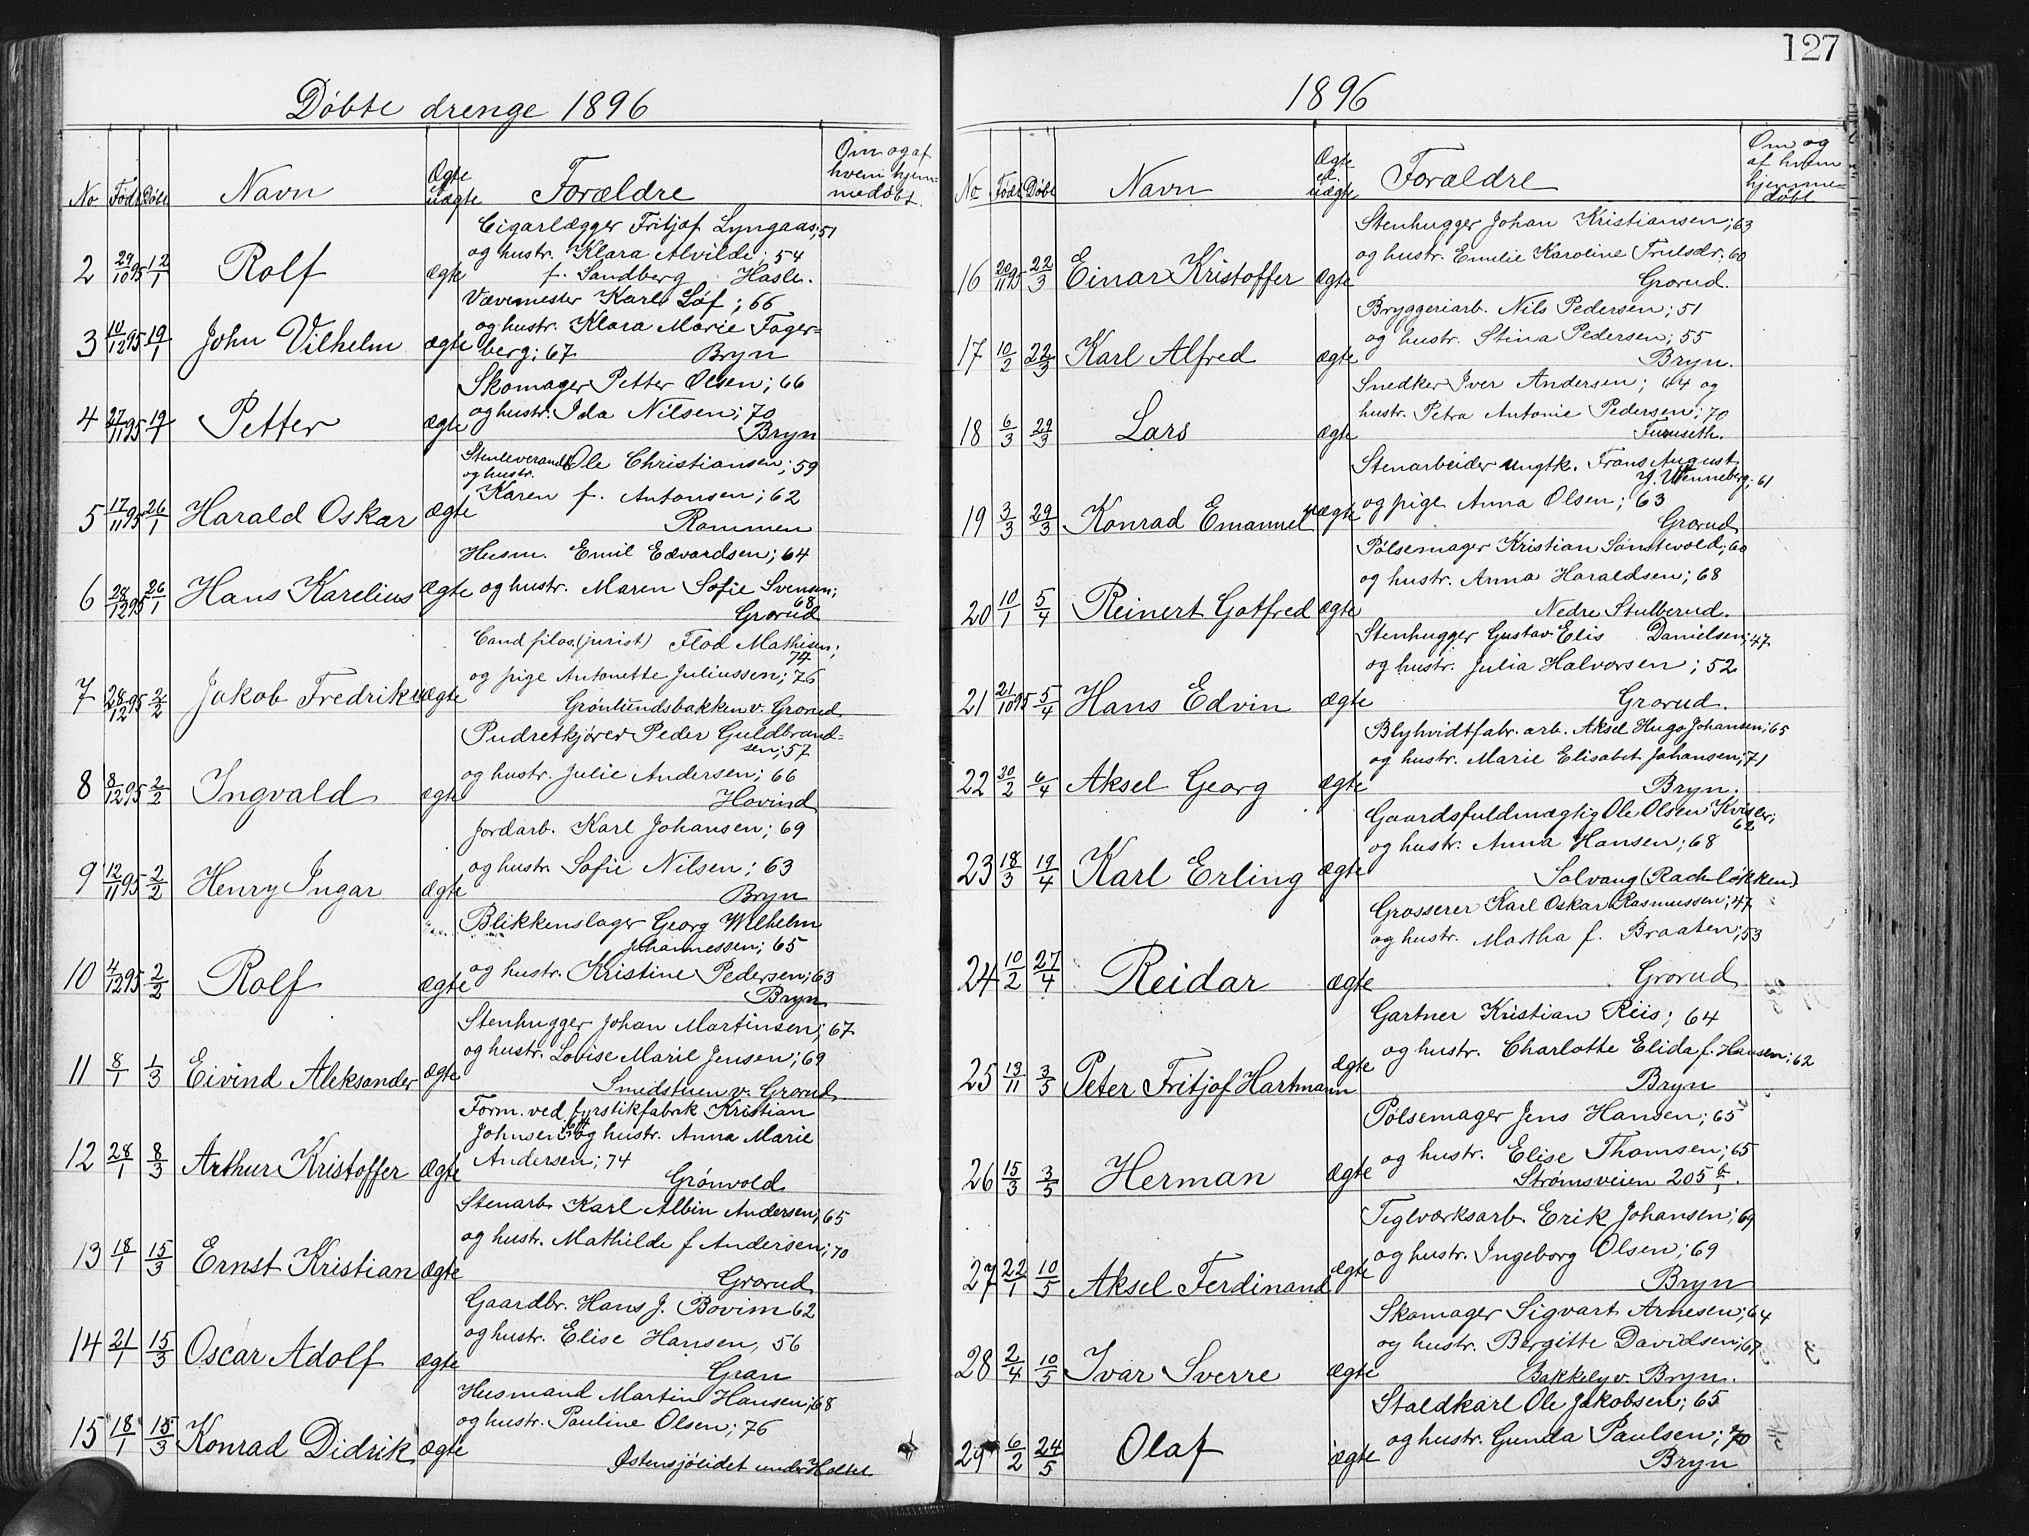 127
Døbte drenge 1896
No Født Døbt Navn Ægte el. uægte Forældre Om og af hvem hjemmedøbt.
Cigarlægger Fritjof Lyngaas; 51
og hustr. Klara Alvilde; 54
2 29/10 95 12/1 Rolf ægte f. Sandberg Hasle.
Vævemester Karl Löf; 66
og hustr. Klara Marie Fager=
3 10/12 95 19/1 John Vilhelm ægte berg; 67 Bryn
Skomager Petter Olsen; 66
og hustr. Ida Nilsen; 70
4 27/11 95 19/1 Petter ægte Bryn
Stenleverandr. Ole Christiansen; 59
og hustr.
Karen f. Antonsen; 62
5 17/11 95 26/1 Harald Oskar ægte Rommen
Husm. Emil Edvardsen; 64
6 28/12 95 26/1 Hans Karelius ægte og hustr. Maren Sofie Svensen;
68
Grorud
Cand filos. (jurist) Flod Mathisen;
74
og pige Antonette Juliussen; 76
7 28/12 95 2/2 Jakob Fredrik uægte Grønlundsbakken v. Grorud
Pudretkjører Peder Guldbrand=
sen; 57
og hustr. Julie Andersen; 66
8 8/12 95 2/2 Ingvald ægte Hovind
Jordarb. Karl Johansen; 69
og hustr. Sofie Nilsen; 63
9 12/11 95 2/2 Henry Ingar ægte Bryn
Blikkenslager Georg Wilhelm
Johannessen; 65
og hustr. Kristine Pedersen; 63
10 4/12 95 2/2 Rolf ægte Bryn
Stenhugger Johan Martinsen; 67
og hustr. Lovise Marie Jensen; 69
11 8/1 1/3 Eivind Aleksander ægte Smedstuen v. Grorud
Form. ved fyrstikfabrik Kristian
Johnsen; og hustr. Anna Marie
12 28/1 8/3 Arthur Kristoffer ægte Andersen; 74
Grønvold
Stenarb. Karl Albin Andersen; 65
og hustr. Mathilde f Andersen; 70
13 18/1 15/3 Ernst Kristian ægte Grorud
Gaardbr. Hans J. Bovim 62
og hustr. Elise Hansen, 56
14 21/1 15/3 Oscar Adolf ægte Gran
Husmand Martin Hansen; 68
og hustr. Pauline Olsen; 76
15 18/1 15/3 Konrad Didrik ægte Østensjølidet under Holtet
1896
No Født Døbt Navn Ægte el. uægte Forældre Om og af hvem hjemmedøbt
Stenhugger Johan Kristiansen; 63
og hustr. Emilie Karoline Trulsdr. 60
16 20/11 95 22/3 Einar Kristoffer ægte Grorud.
Bryggeriarb. Nils Pedersen; 51
og hustr. Stina Pedersen; 55
17 10/2 22/3 Karl Alfred ægte Bryn.
Snedker Iver Andersen; 64 og
hustr. Petra Antonie Pedersen; 70
18 6/3 29/3 Lars ægte Furuseth.
Stenarbeider ungtk. Frans August
Wenneberg; 61
og pige Anna Olsen; 63
19 3/3 29/3 Konrad Emanuel uægte Grorud
Pølsemager Kristian Sønstevold; 60
og hustr. Anna Haraldsen; 68
20 10/1 5/4 Reinert Gotfred ægte Nedre Stulberud.
Stenhugger Gustav Elis Danielsen; 47
og hustr. Julia Halvorsen; 52
21 21/10 95 5/4 Hans Edvin ægte Grorud.
Blyhvidtfabr. arb. Aksel Hugo Johansen; 65
og hustr. Marie Elisabet Johansen; 71
22 30/2 6/4 Aksel Georg ægte Bryn.
Gaardsfuldmægtig Ole Olsen Kvisler;
62
og hustr. Anna Hansen; 68
23 18/3 19/4 Karl Erling ægte Solvang (Rachløkken)
Grosserer Karl Oskar Rasmussen; 47
og hustr. Martha f. Braaten; 53
24 10/2 27/4 Reidar ægte Grorud
Gartner Kristian Reis; 64
og hustr. Charlotte Elida f. Hansen; 62
25 13/11 3/5 Peter Fritjof Hartmann ægte Bryn
Pølsemager Jens Hansen; 65
og hustr. Elise Thomsen; 65
26 15/3 3/5 Herman ægte Strømsveien 205
Teglværksarb. Erik Johansen; 69
og hustr. Ingeborg Olsen; 69
27 22/1 10/5 Aksel Ferdinand ægte Bryn
Skomager Sigvart Arnesen; 64
og hustr. Bergitte Davidsen; 67
28 2/4 10/5 Ivar Sverre ægte Bakkely v. Bryn.
Staldkarl Ole Jakobsen; 65
og hustr. Gunda Paulsen; 70
29 6/2 24/5 Olaf ægte Bryn